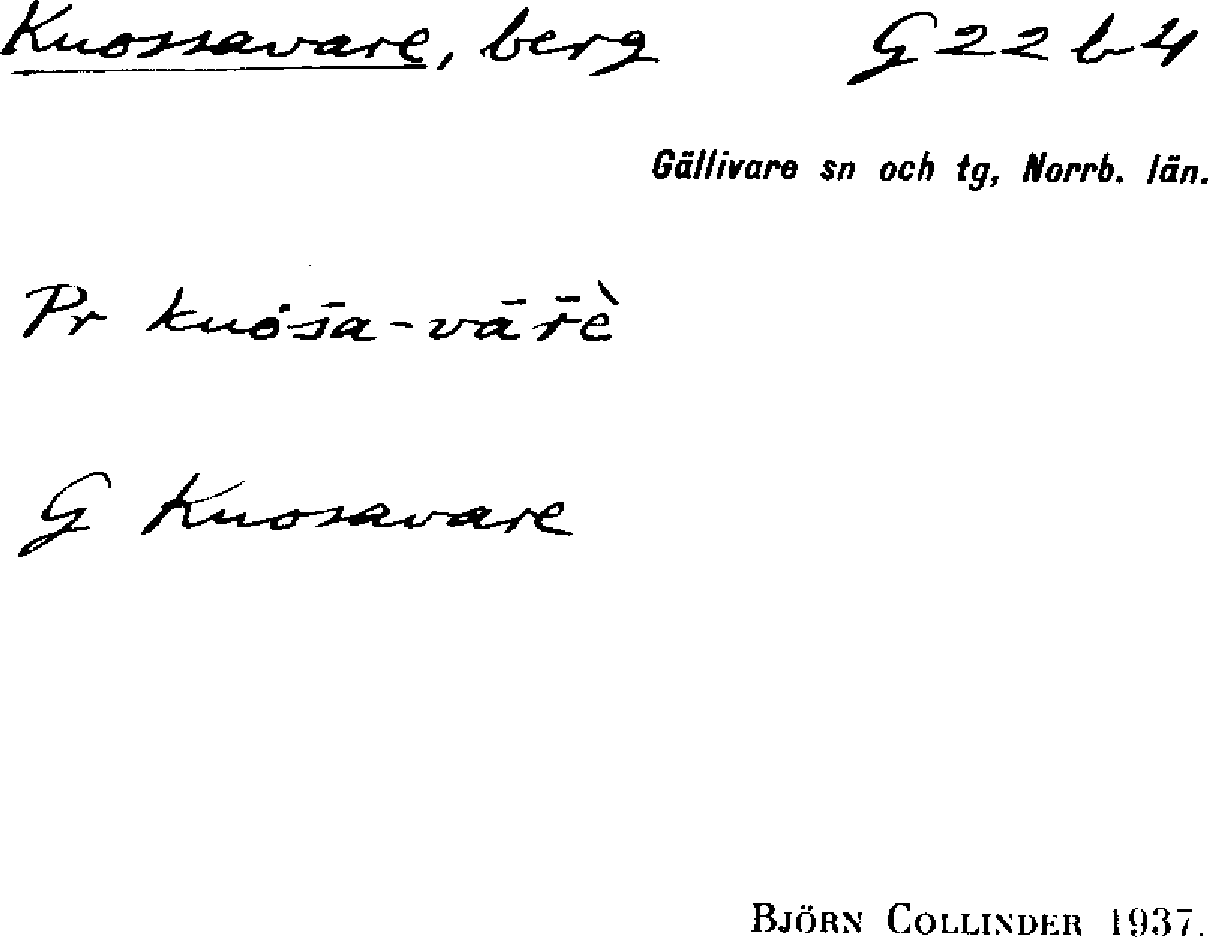 Knossavare, berg G 22 b 4
Gällivare sn och tg, Norrb. län.
Pr kuȯs̄a-vār̄è
G Kuosavare
BJÖRN COLLINDER 1937.